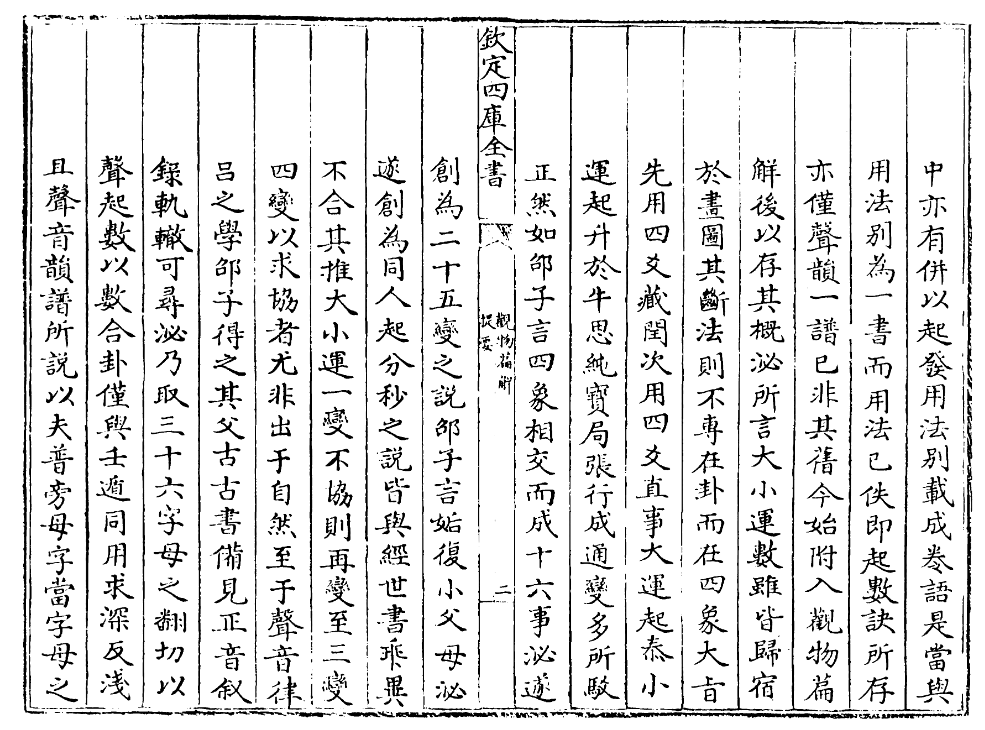 中亦有併以起發用法別載成卷語是當與
用法別為一書而用法已佚即起數訣所存
亦僅聲韻一譜已非其舊今始附入觀物篇
解後以存其概泌所言大小運數雖皆歸宿
於畫圖其斷法則不專在卦而在四象大旨
先用四爻藏閏次用四爻直事大運起泰小
運起升於牛思純寶局張行成通變多所駮
正然如邵子言四象相交而成十六事泌遂
欽定四庫全書
觀物篇解
提要
二
創為二十五變之說邵子言姤復小父母泌
遂創為同人起分秒之說皆與經世書乖異
不合其推大小運一變不協則再變至三變
四變以求協者尤非出于自然至于聲音律
呂之學邵子得之其父古古書備見正音叙
錄軌轍可尋泌乃取三十六字母之翻切以
聲起數以數合卦僅與壬遁同用求深反淺
且聲音韻譜所説以夫普旁母字當字母之